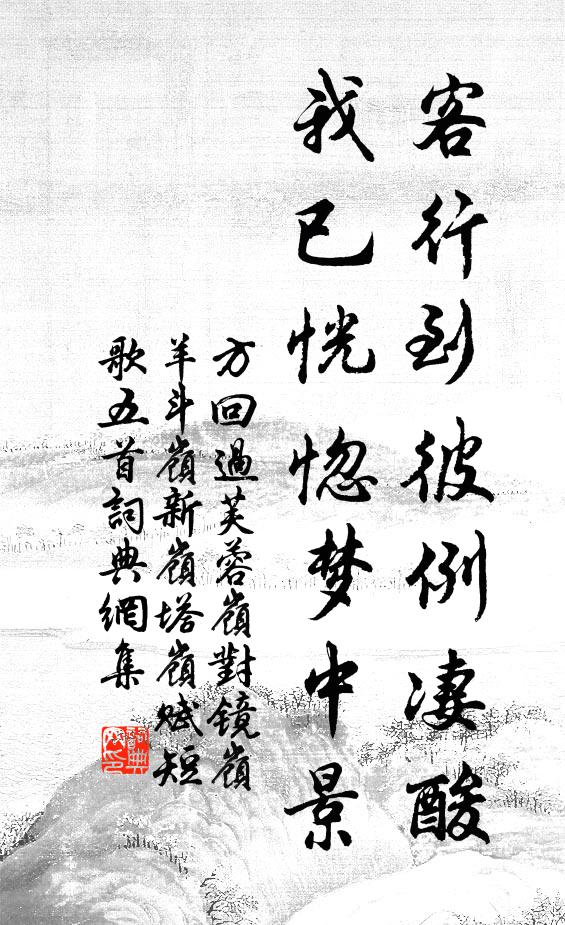 客行到彼例凄酸
我已恍惚梦中景
方回過芙蓉嶺對镜嶺
羊斗嶺新嶺塔嶺赋短
歌五首詞典網集